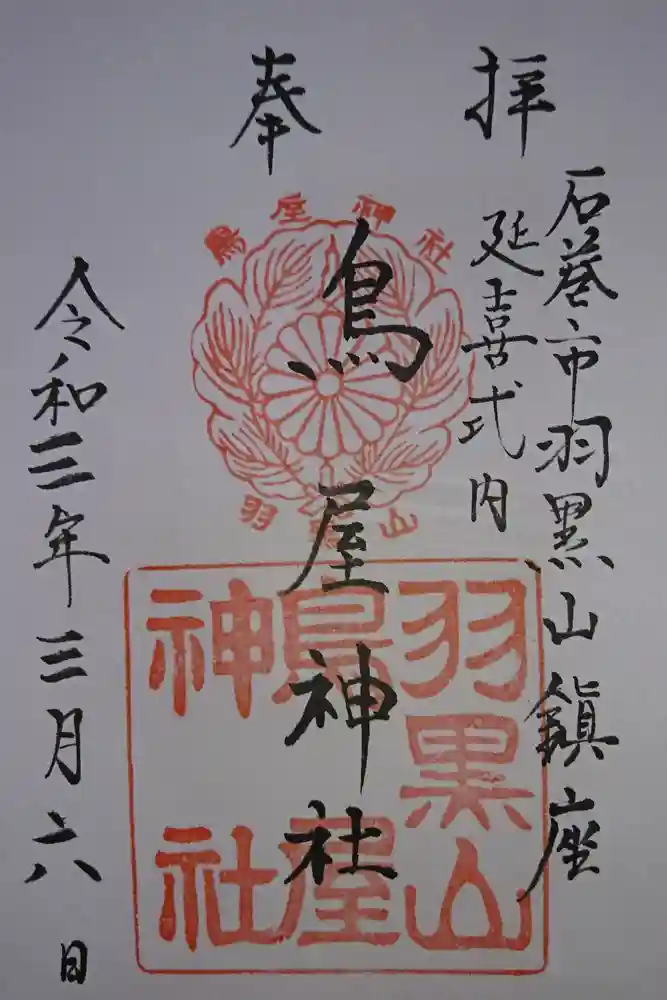 奉拝
石巻市羽黒山鎮座
延喜式内
鳥屋神社
令和三年三月六日
鳥屋神社
羽黒山
羽黒山
鳥屋
神社